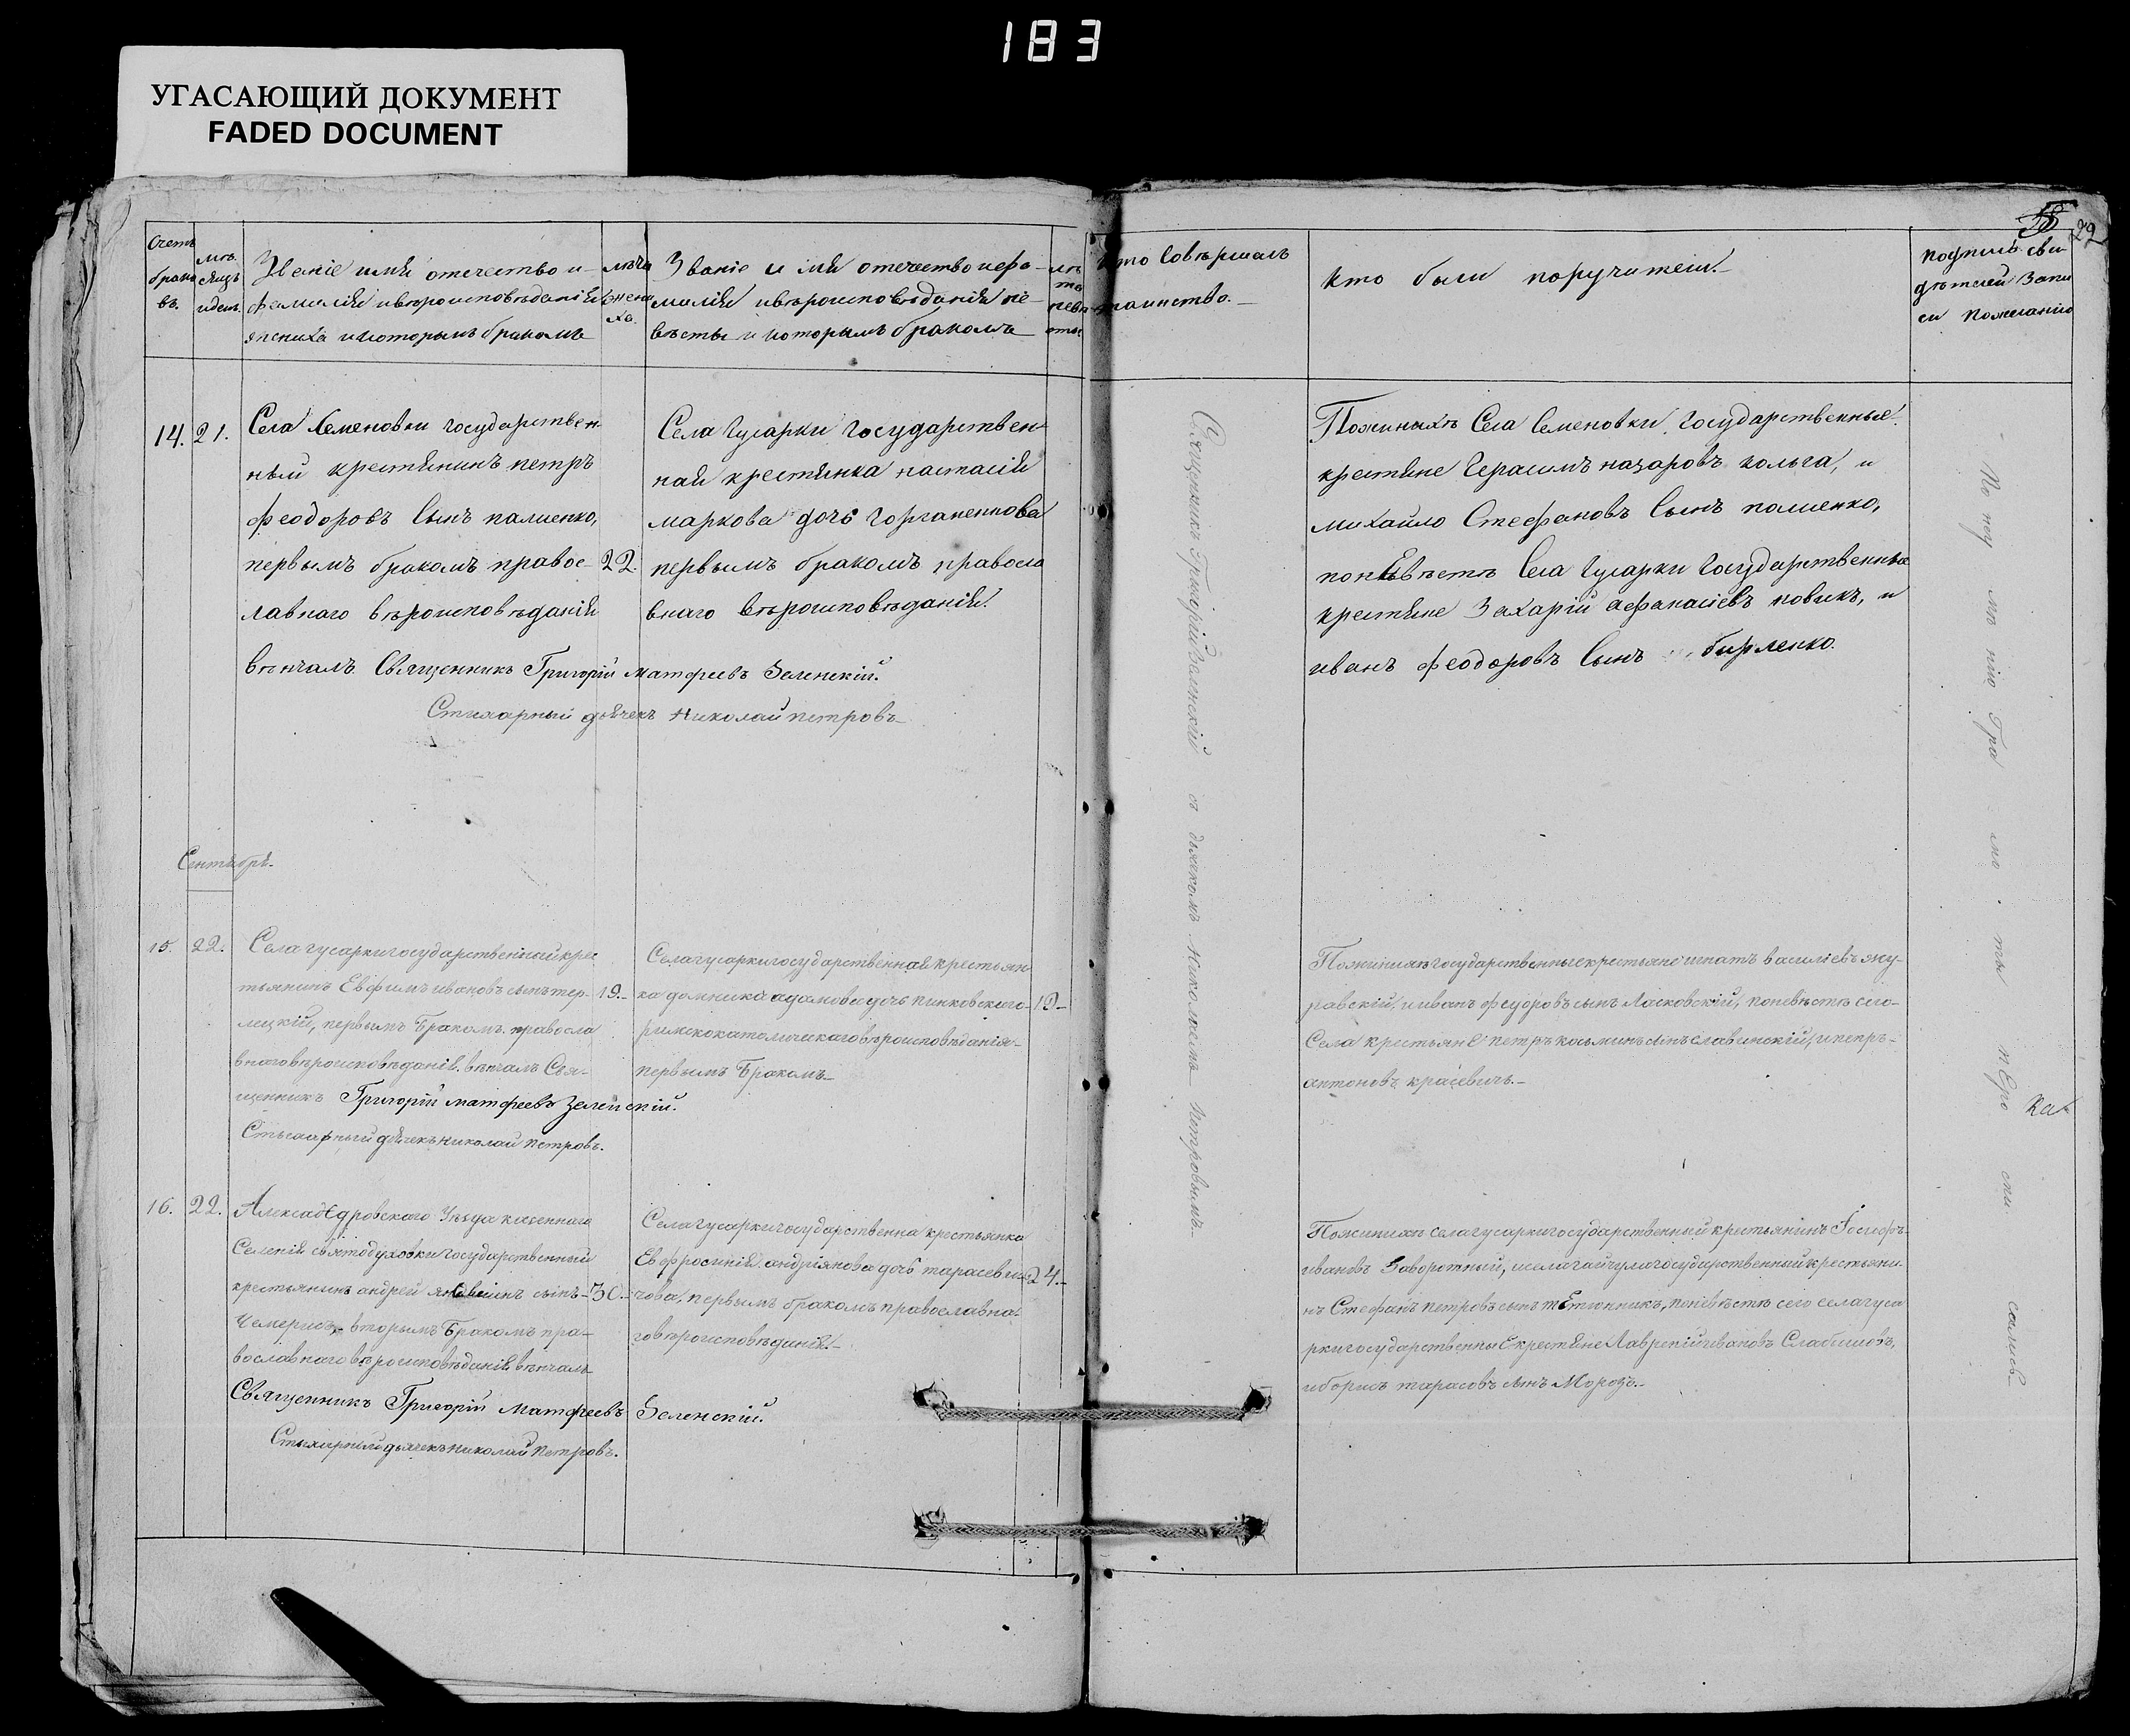 183
УГАСАЮЩИЙ ДОКУМЕНТ
FADED DOCUMENT
22
Счетъ
брако
въ.
мѣ.
сяцъ
и день.
Званіе имя отечество и
фамилія и вѣроисповѣданія
жениха и которымъ бракомъ
лѣта
жени
ха.
Званіе и имя отечество и фа-
милія и вѣроисповѣданія не-
вѣсты и которымъ бракомъ
лѣ
та
невѣ
сты
Кто совѣршалъ
таинство.-
Кто были поручители.-
подпись сви
дѣтелей Запи
си Пожеланію
14.
21.
Села Семеновки государствен-
ный крестянинъ петръ
феодоровъ сынъ палиенко,
первымъ бракомъ правос-
лавнаго вѣроисповѣданія
22.
вѣнчалъ Священникъ Григорій матфеевъ Зеленскій.
Стихарный дьячекъ Николай петровъ
Села Гусарки государствен
ная крестянка настасія
маркова дочь горганенкова
первымъ бракомъ правосла
внаго вѣроисповѣданія.
Поженихъ Села Семеновки государственные
крестяне Герасимъ назаровъ кольга, и
михайло Стефановъ сынъ палиенко,
поневѣстѣ Села Гусарки государственные
крестяне Захарій афанасіевъ новикъ, и
иванъ феодоровъ сынъ бирленко.
Сентябрь.
15.
22.
Села гусарки государственный крес
тьянинъ Евфимъ ивановъ сынъ тер-
лецкій, первымъ Бракомъ. правосла
внаго вѣроисповѣданія. вѣнчалъ Свя-
щенникъ Григорій матфеевъ Зеленскій.
Стыхарный дьячекъ Николай Петровъ.
19.-
Села гусарки государственная крестьян-
ка домника адамова дочь пинковского-
римскокатолическаго вѣроисповѣданія-
первымъ Бракомъ-
19-
Поженихѣ государственные крестьяне игнатъ василіевъ жу-
равскій, и иванъ федоровъ сынъ Ласковскій, поневѣстѣ сего-
Села крестьянЕ петръ косьминъ сынъ славинскій, и петръ-
антоновъ красевичъ.-
16.
22.
АлексадЕдровскаго Уѣзда казеннаго
Селенія святодуховки государственный
крестьянинъ андрей сынъ-
Чемерисъ,- вторымъ Бракомъ пра-
вославнаго вѣроисповѣданія вѣнчалъ
Священникъ Григорій Матфеевъ Зеленскій.
Стыхарный дьячекъ николай Петровъ.
30.-
Села гусарки государственна крестьянка
Евфросинія андріянова дочь тарасеви-
чова, первымъ бракомъ православна-
го вѣроисповѣданія.-
24.-
Поженихѣ села гусарки государственный крестьянинъ Іосифъ-
ивановъ Заворотный, и села гайчула государственный крестьяни-
нъ Стефанъ петровъ сынъ тЕтюнникъ, поневѣстѣ сего села гуса
рки государственныЕ крестяне Лаврентій ивановъ Слабишовъ,
и борисъ тарасовъ сынъ Морозъ.-
Священникъ Григорій Зеленскій съ дьячкомъ Николаемъ Петровымъ-
По не у мѣ нію Гра мо ты нЕро спи сались